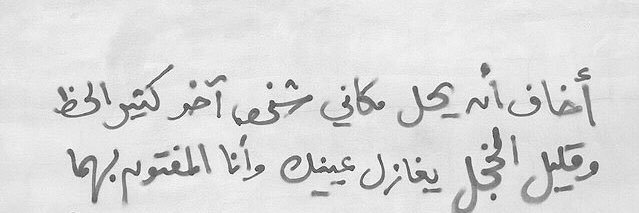 أخاف أن يحل مكاني شخص آخر كثير الحظ
وقليل الخجل يغازل عينيك وأنا المفتون بهما